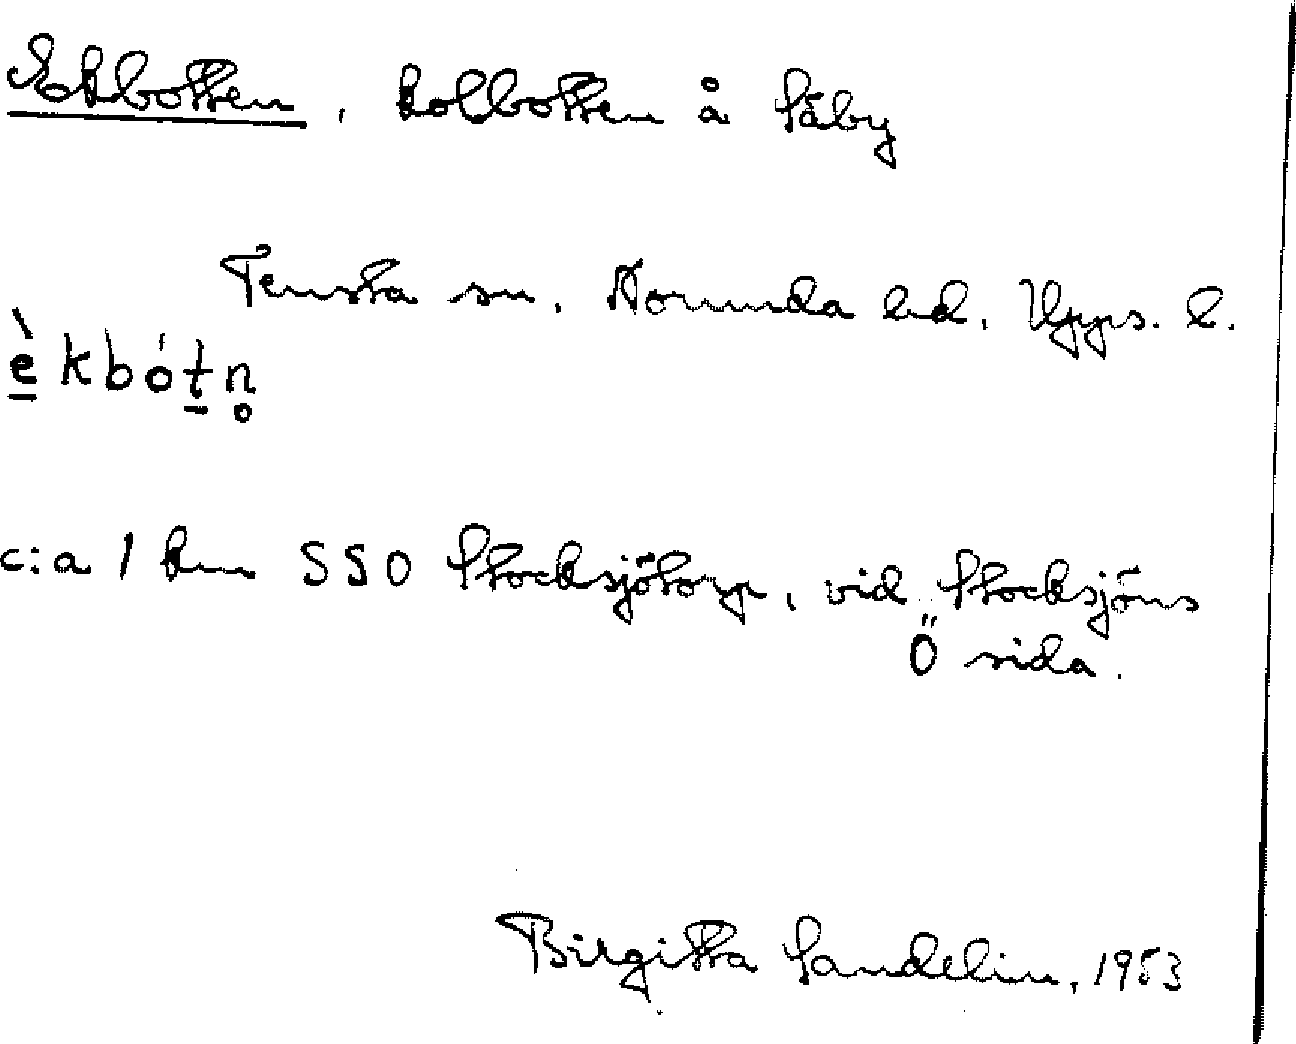 Ekbotten, kolbotten å Säby
Tensta sn. Norunda hd. Upps. l.
è̱kbót̠n̥
c:a 1 km SSO Stocksjötorp, vid Stocksjöns
Ö sida.
Birgitta Sandelin, 1953